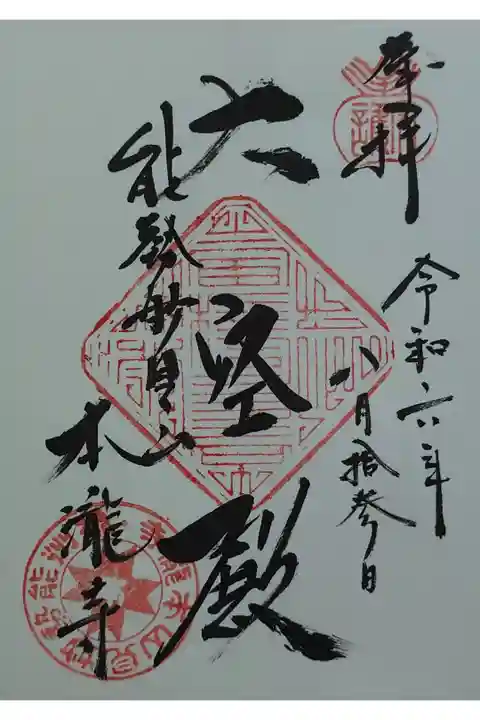 奉拝
令和六年
八月拾参日
大 殿
能勢妙見山
本瀧寺